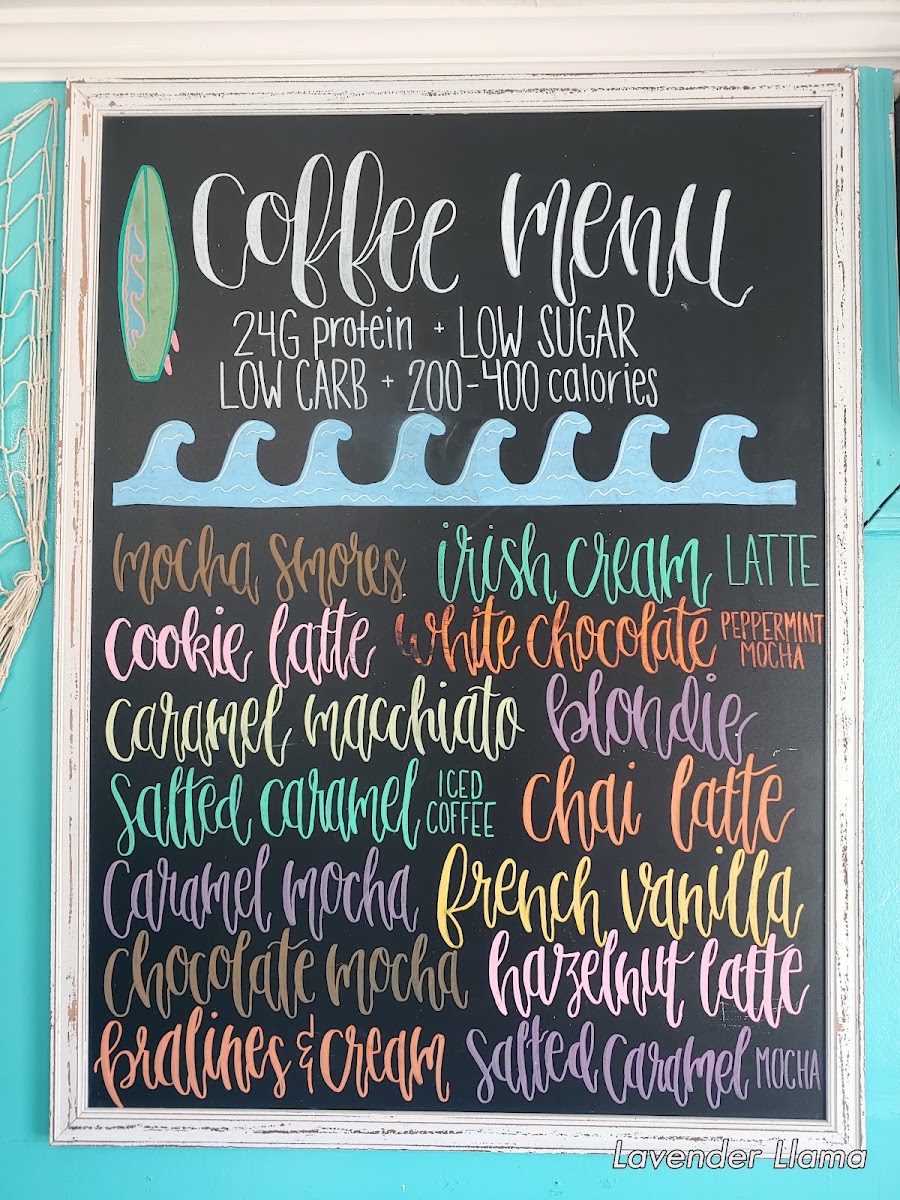 Coffee menu
24G protein + LOW SUGAR
LOW CARB + 200-400 calories
mocha smores
irish cream LATTE
cookie latte
white chocolate PEPPERMINT
MOCHA
caramel macchiato
blondie
salted caramel ICED
COFFEE
chai latte
caramel mocha
french vanilla
chocolate mocha
hazelnut latte
pralines & cream
salted caramel MOCHA
Lavender Llama